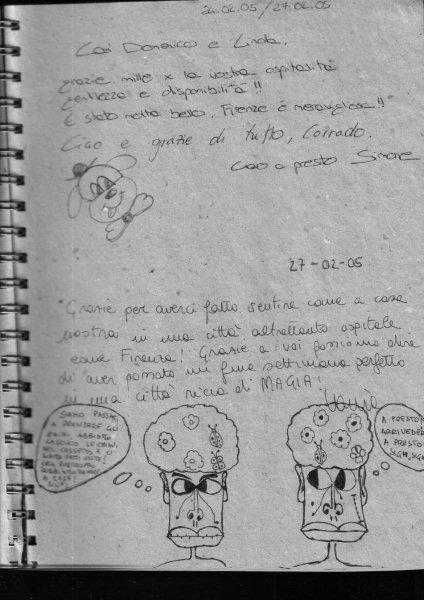 24.02.05/27.02.05
Cari Domenico e Linda,
grazie mille x la vostra ospitalità
gentilezza e disponibilità!!
È stato molto bello, Firenze è meravigliosa!!
Ciao e grazie di tutto, Corrado.
Ciao a presto Simone
27-02-05
Grazie per averci fatto sentire come a casa
nostra in una città altrettanto ospitale
come Firenze! Grazie a voi possiamo dire
di aver passato un fine settimana perfetto
in una città ricca di MAGIA!
SIAMO PASSATI
A PRENDERE GLI
ABBIAMO
LASCIATO LE CHIAVI
NEL CASSETTO E CI
SIAMO FATI
ORA
A CASA!
A PRESTO
ARRIVEDERCI
A PRESTO
SIGH, SIGH